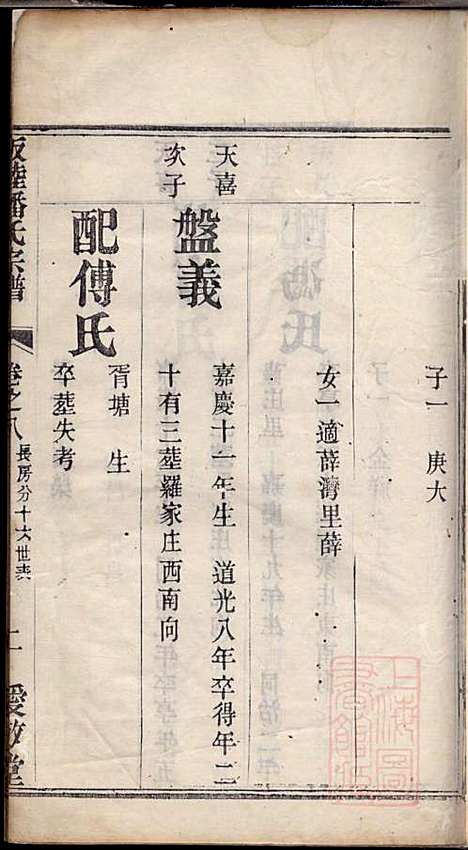 子一 庚大
女一適薛灣里薛
天喜
次子
盤義
嘉慶十一年生 道光八年卒得年二
十有三塟羅家庄西南向
配傅氏
胥塘 生
卒塟失考
潘氏宗譜
卷之八
長房分十六世表
二
愛敬堂
上海圖書館藏